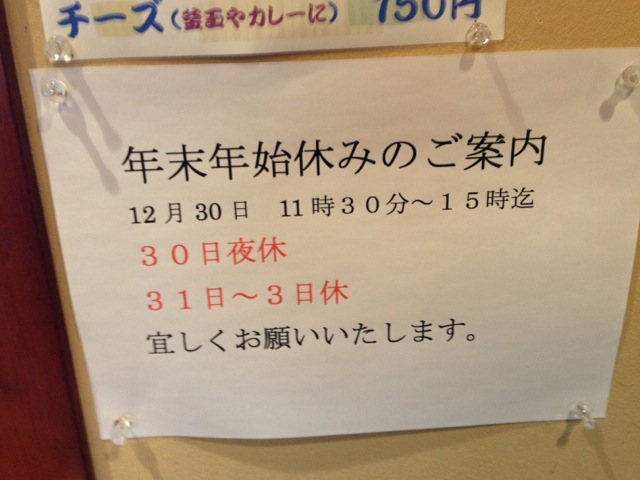 チーズ(釜玉やカレーに) 150円
年末年始休みのご案内
12月30日 11時３０分～１５時迄
３０日夜休
３１日～３日休
宜しくお願いいたします。